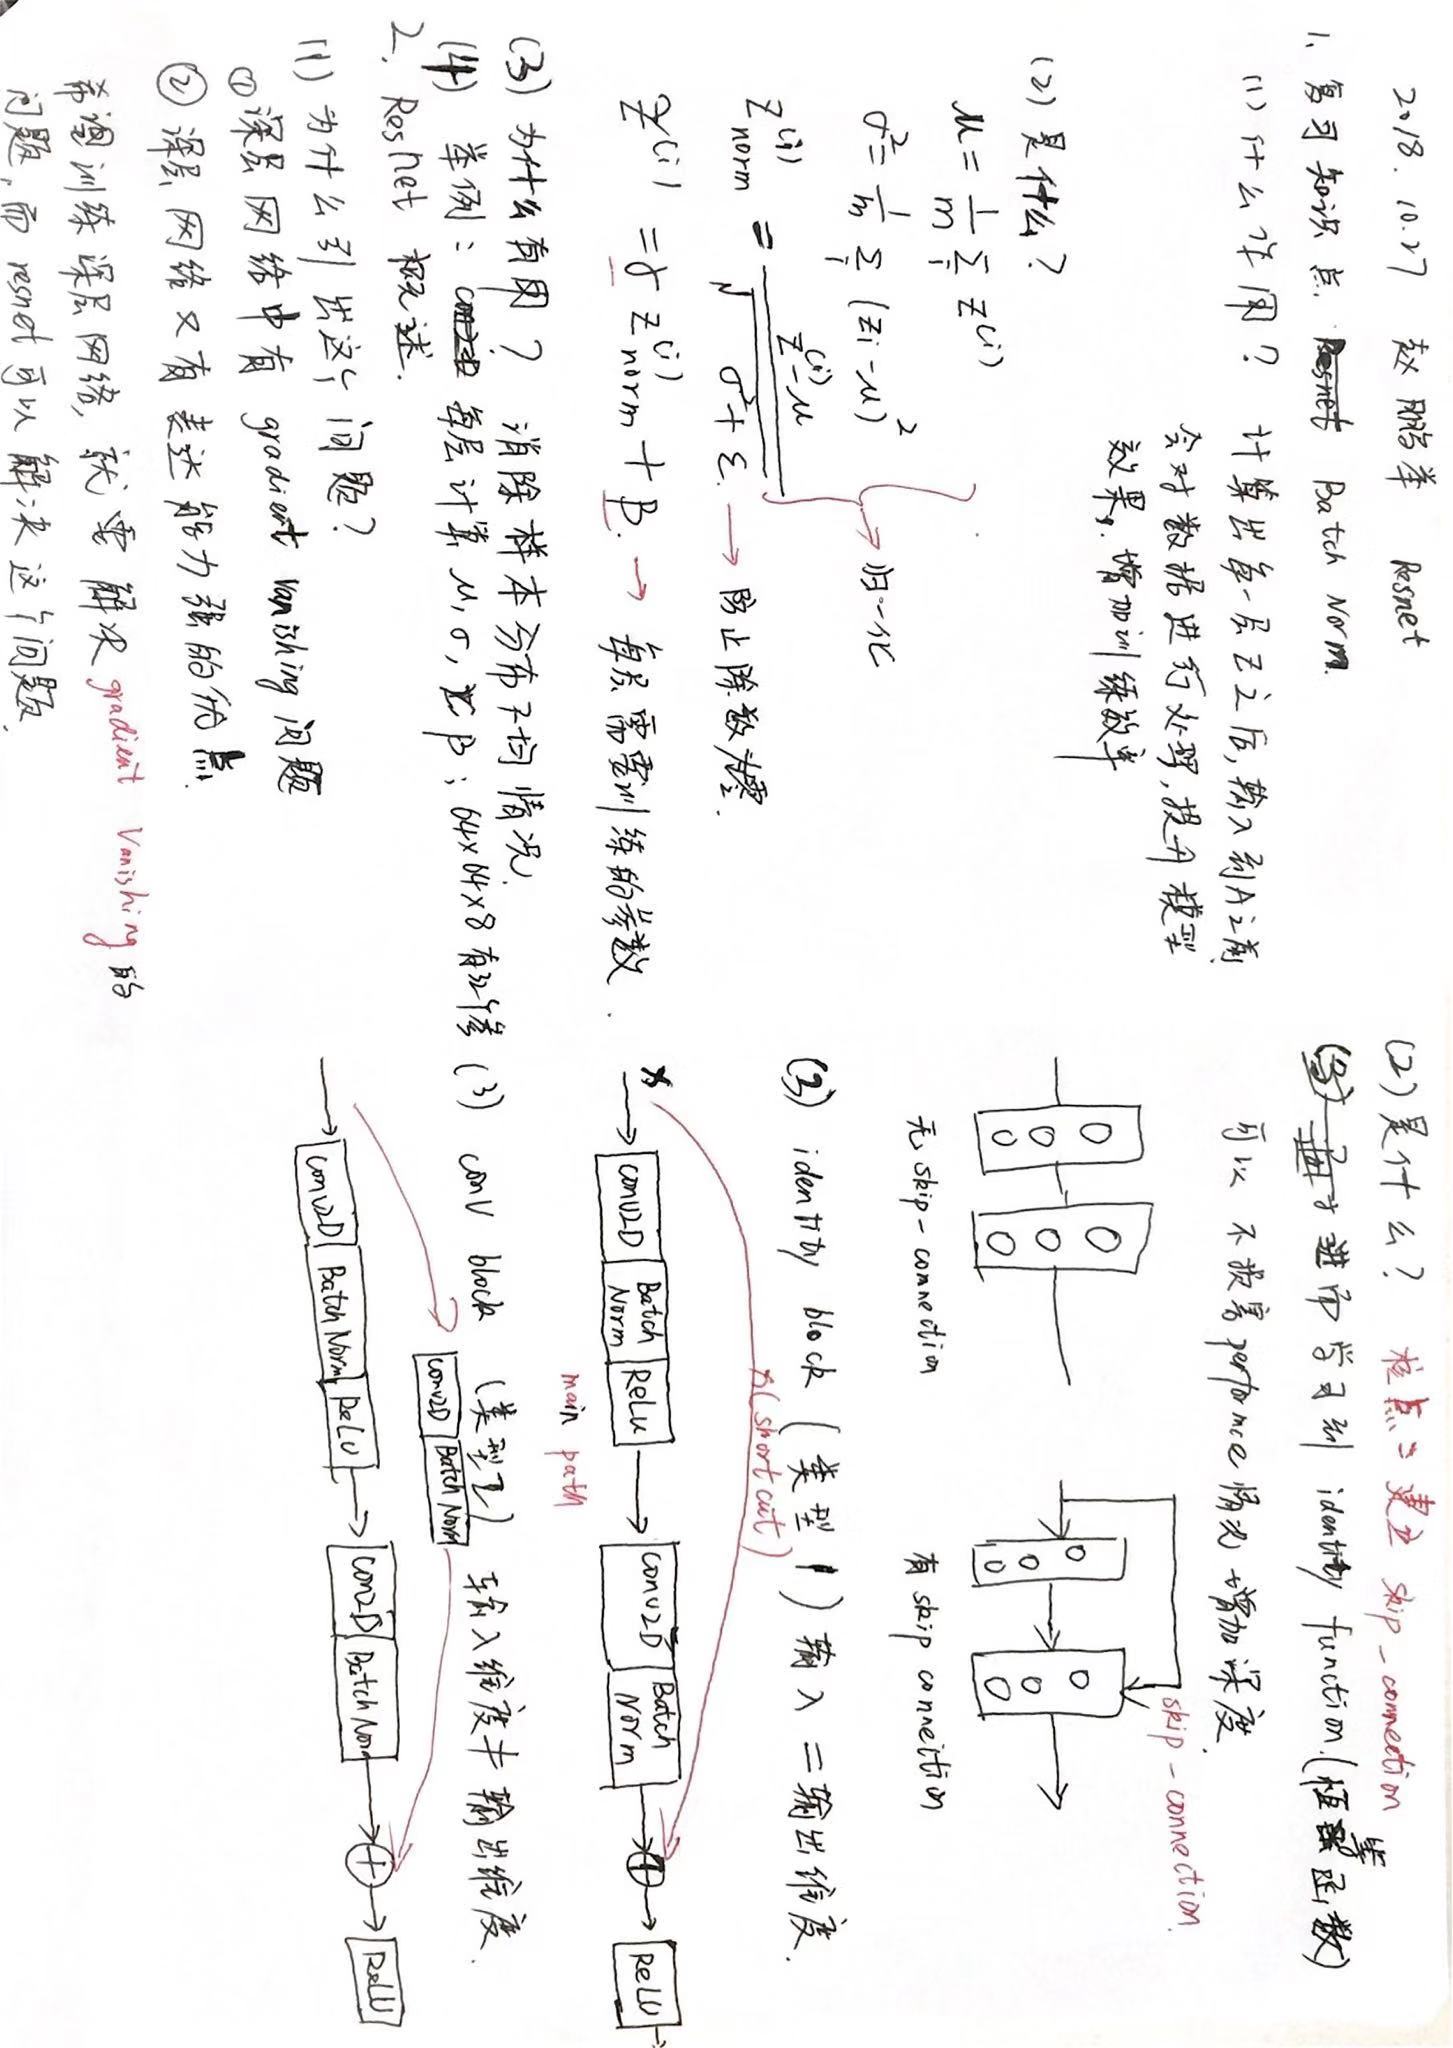 2018.10.27 赵鹏举 Resnet
1. 复习知识点 Batch Norm.
(1) 什么作用? 计算出每一层Z之后,输入到A之前
会对数据进行处理,提升模型
效果,增加训练效率
(2) 是什么?
μ = 1/m Σi z(i)
σ² = 1/m Σi (zi-μ)²
→ 归一化
z(i)norm = (z(i)-μ) / √(σ²+ε) → 防止除数为零.
z(i) = γ z(i)norm + β. → 每层需要训练的参数.
(3) 为什么有用? 消除样本分布不均情况.
(4) 举例: 每层计算 μ, σ, γ β; 64×64×8 有32个
2. Resnet 概述.
(1) 为什么引出这个问题?
① 深层网络中有 gradient vanishing 问题
② 深层网络又有表达能力强的优点.
希望训练深层网络,就需解决 gradient vanishing 的
问题,而 resnet 可以解决这个问题.
(2) 是什么? 核点: 建立 skip-connection
进而学习到 identity function.(恒等函数)
可以不损害performce情况增加深度.
skip-connection
无 skip-connection
有 skip connection
(3) identity block (类型1) 输入=输出维度.
(shortcut)
X
Conv2D
Batch
Norm
ReLu
Conv2D
Batch
Norm
ReLU
main path
(3) conv block (类型2) 输入维度≠输出维度.
Conv2D
BatchNorm
Conv2D
BatchNorm
ReLU
Con2D
BatchNorm
ReLU